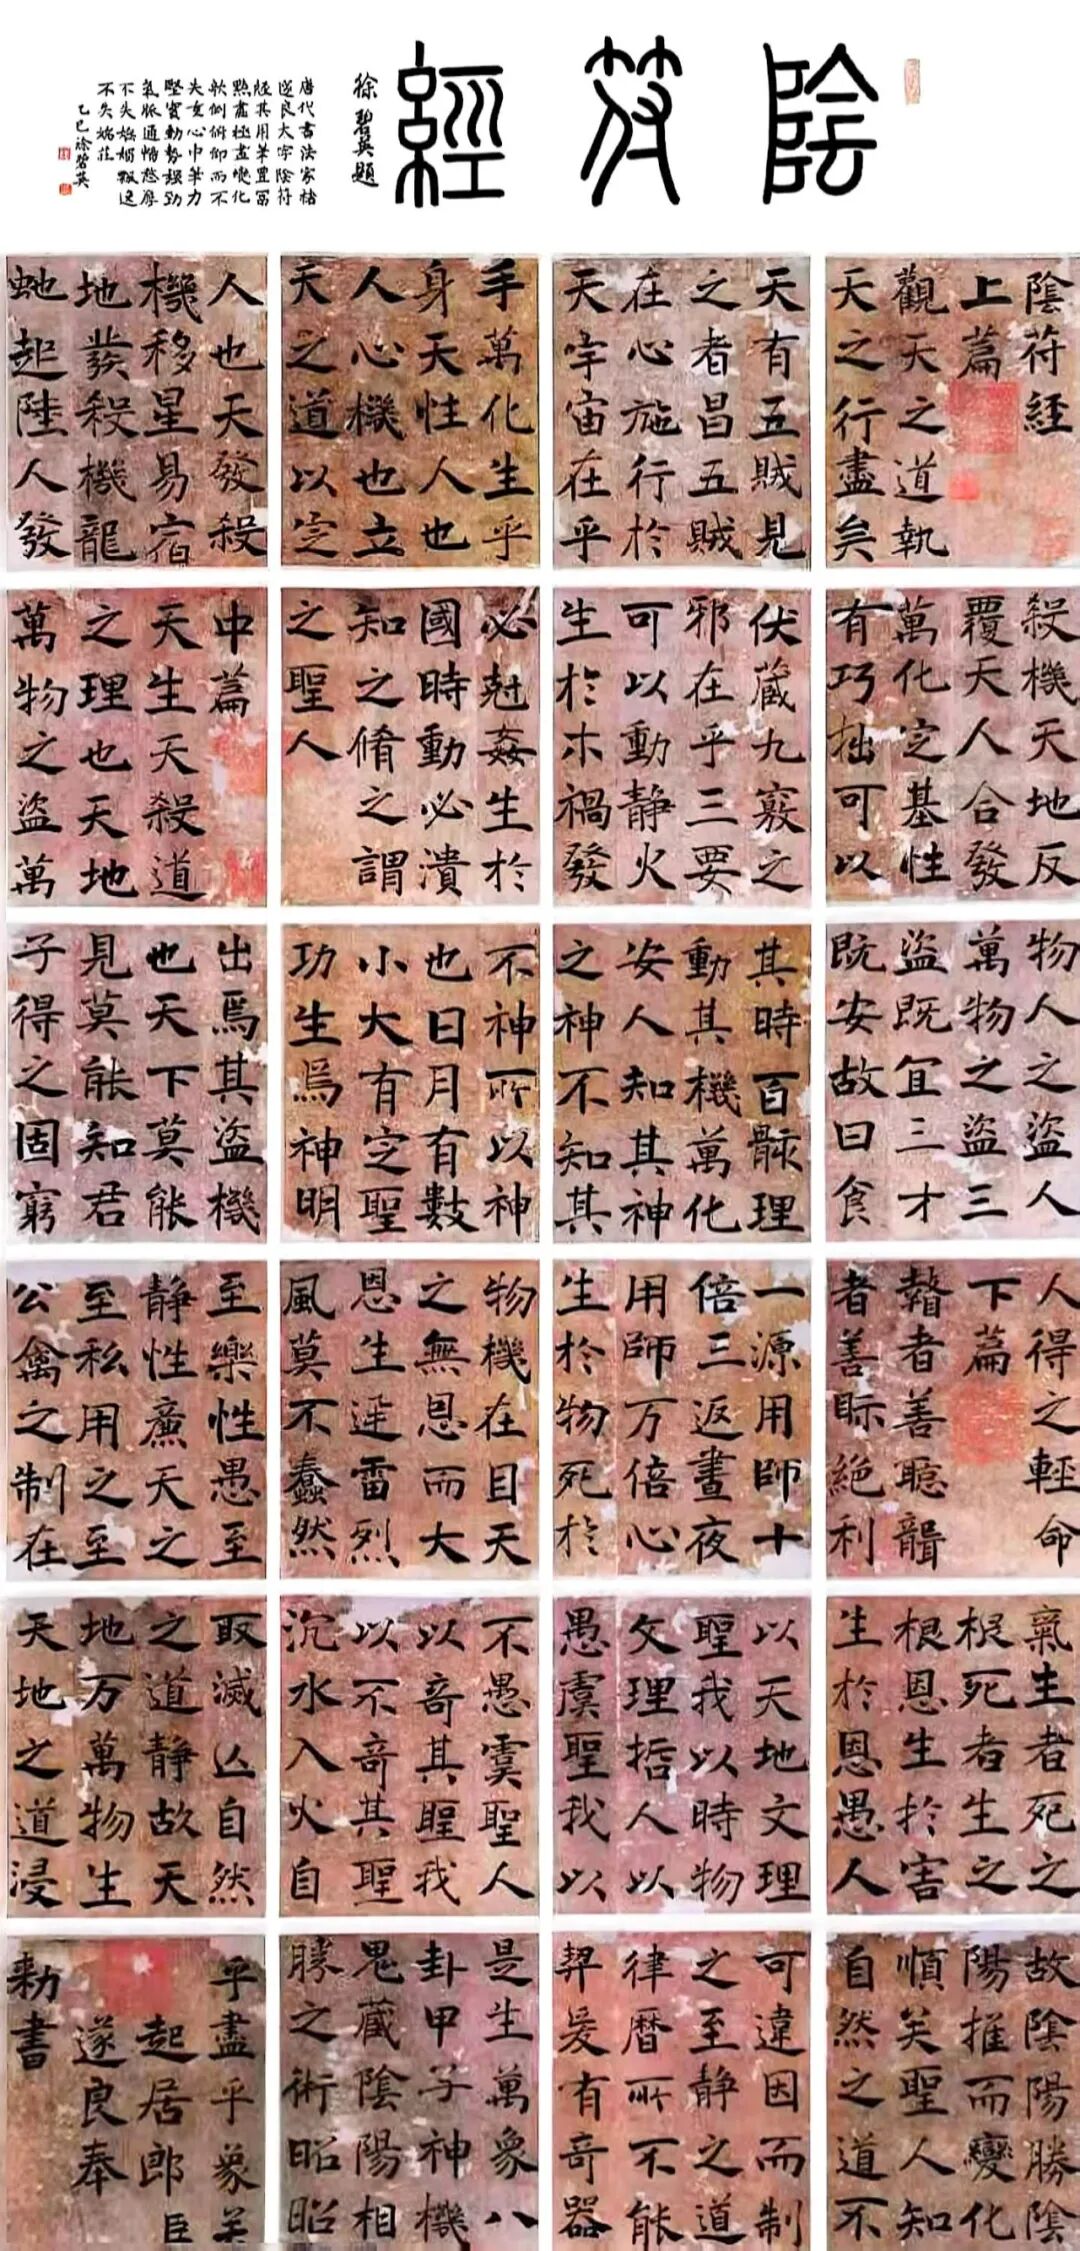 陰符經
徐碧英題
唐代書法家褚
遂良大字陰符
經其用筆豐富
點畫極盡變化
欹側俯仰而不
失重心中筆力
堅實動勢強勁
氣脈通暢
不失嫵媚飄逸
不失端莊
乙巳徐碧英
陰符經
上篇
觀天之道執
天之行盡矣
天有五賊見
之者昌五賊
在心施行於
天宇宙在乎
手萬化生乎
身天性人也
人心機也立
天之道以定
人也天發殺
機移星易宿
地發殺機龍
虵起陸人發
殺機天地反
覆天人合發
萬化定基性
有巧拙可以
伏藏九竅之
邪在乎三要
可以動靜火
生於木禍發
必剋姦生於
國時動必潰
知之脩之謂
之聖人
中篇
天生天殺道
之理也天地
萬物之盜萬
物人之盜人
萬物之盜三
盜既宜三才
既安故曰食
其時百骸理
動其機萬化
安人知其神
之神不知其
不神所以神
也日月有數
小大有定聖
功生焉神明
出焉其盜機
也天下莫能
見莫能知君
子得之固窮
人得之輕命
下篇
瞽者善聽聾
者善眎絕利
一源用師十
倍三返晝夜
用師万倍心
生於物死於
物機在目天
之無恩而大
恩生迅雷烈
風莫不蠢然
至樂性愚至
靜性廉天之
至私用之至
公禽之制在
氣生者死之
根死者生之
根恩生於害
生於恩愚人
以天地文理
聖我以時物
文理哲人以
愚虞聖我以
不愚虞聖人
以奇其聖我
以不奇其聖
沉水入火自
取滅亾自然
之道靜故天
地万萬物生
天地之道浸
故陰陽勝陰
陽推而變化
順矣聖人知
自然之道不
可違因而制
之至靜之道
律曆所不能
契爰有奇器
是生萬象八
卦甲子神機
鬼藏陰陽相
勝之術昭昭
乎盡乎象矣
起居郎臣
遂良奉
勅書